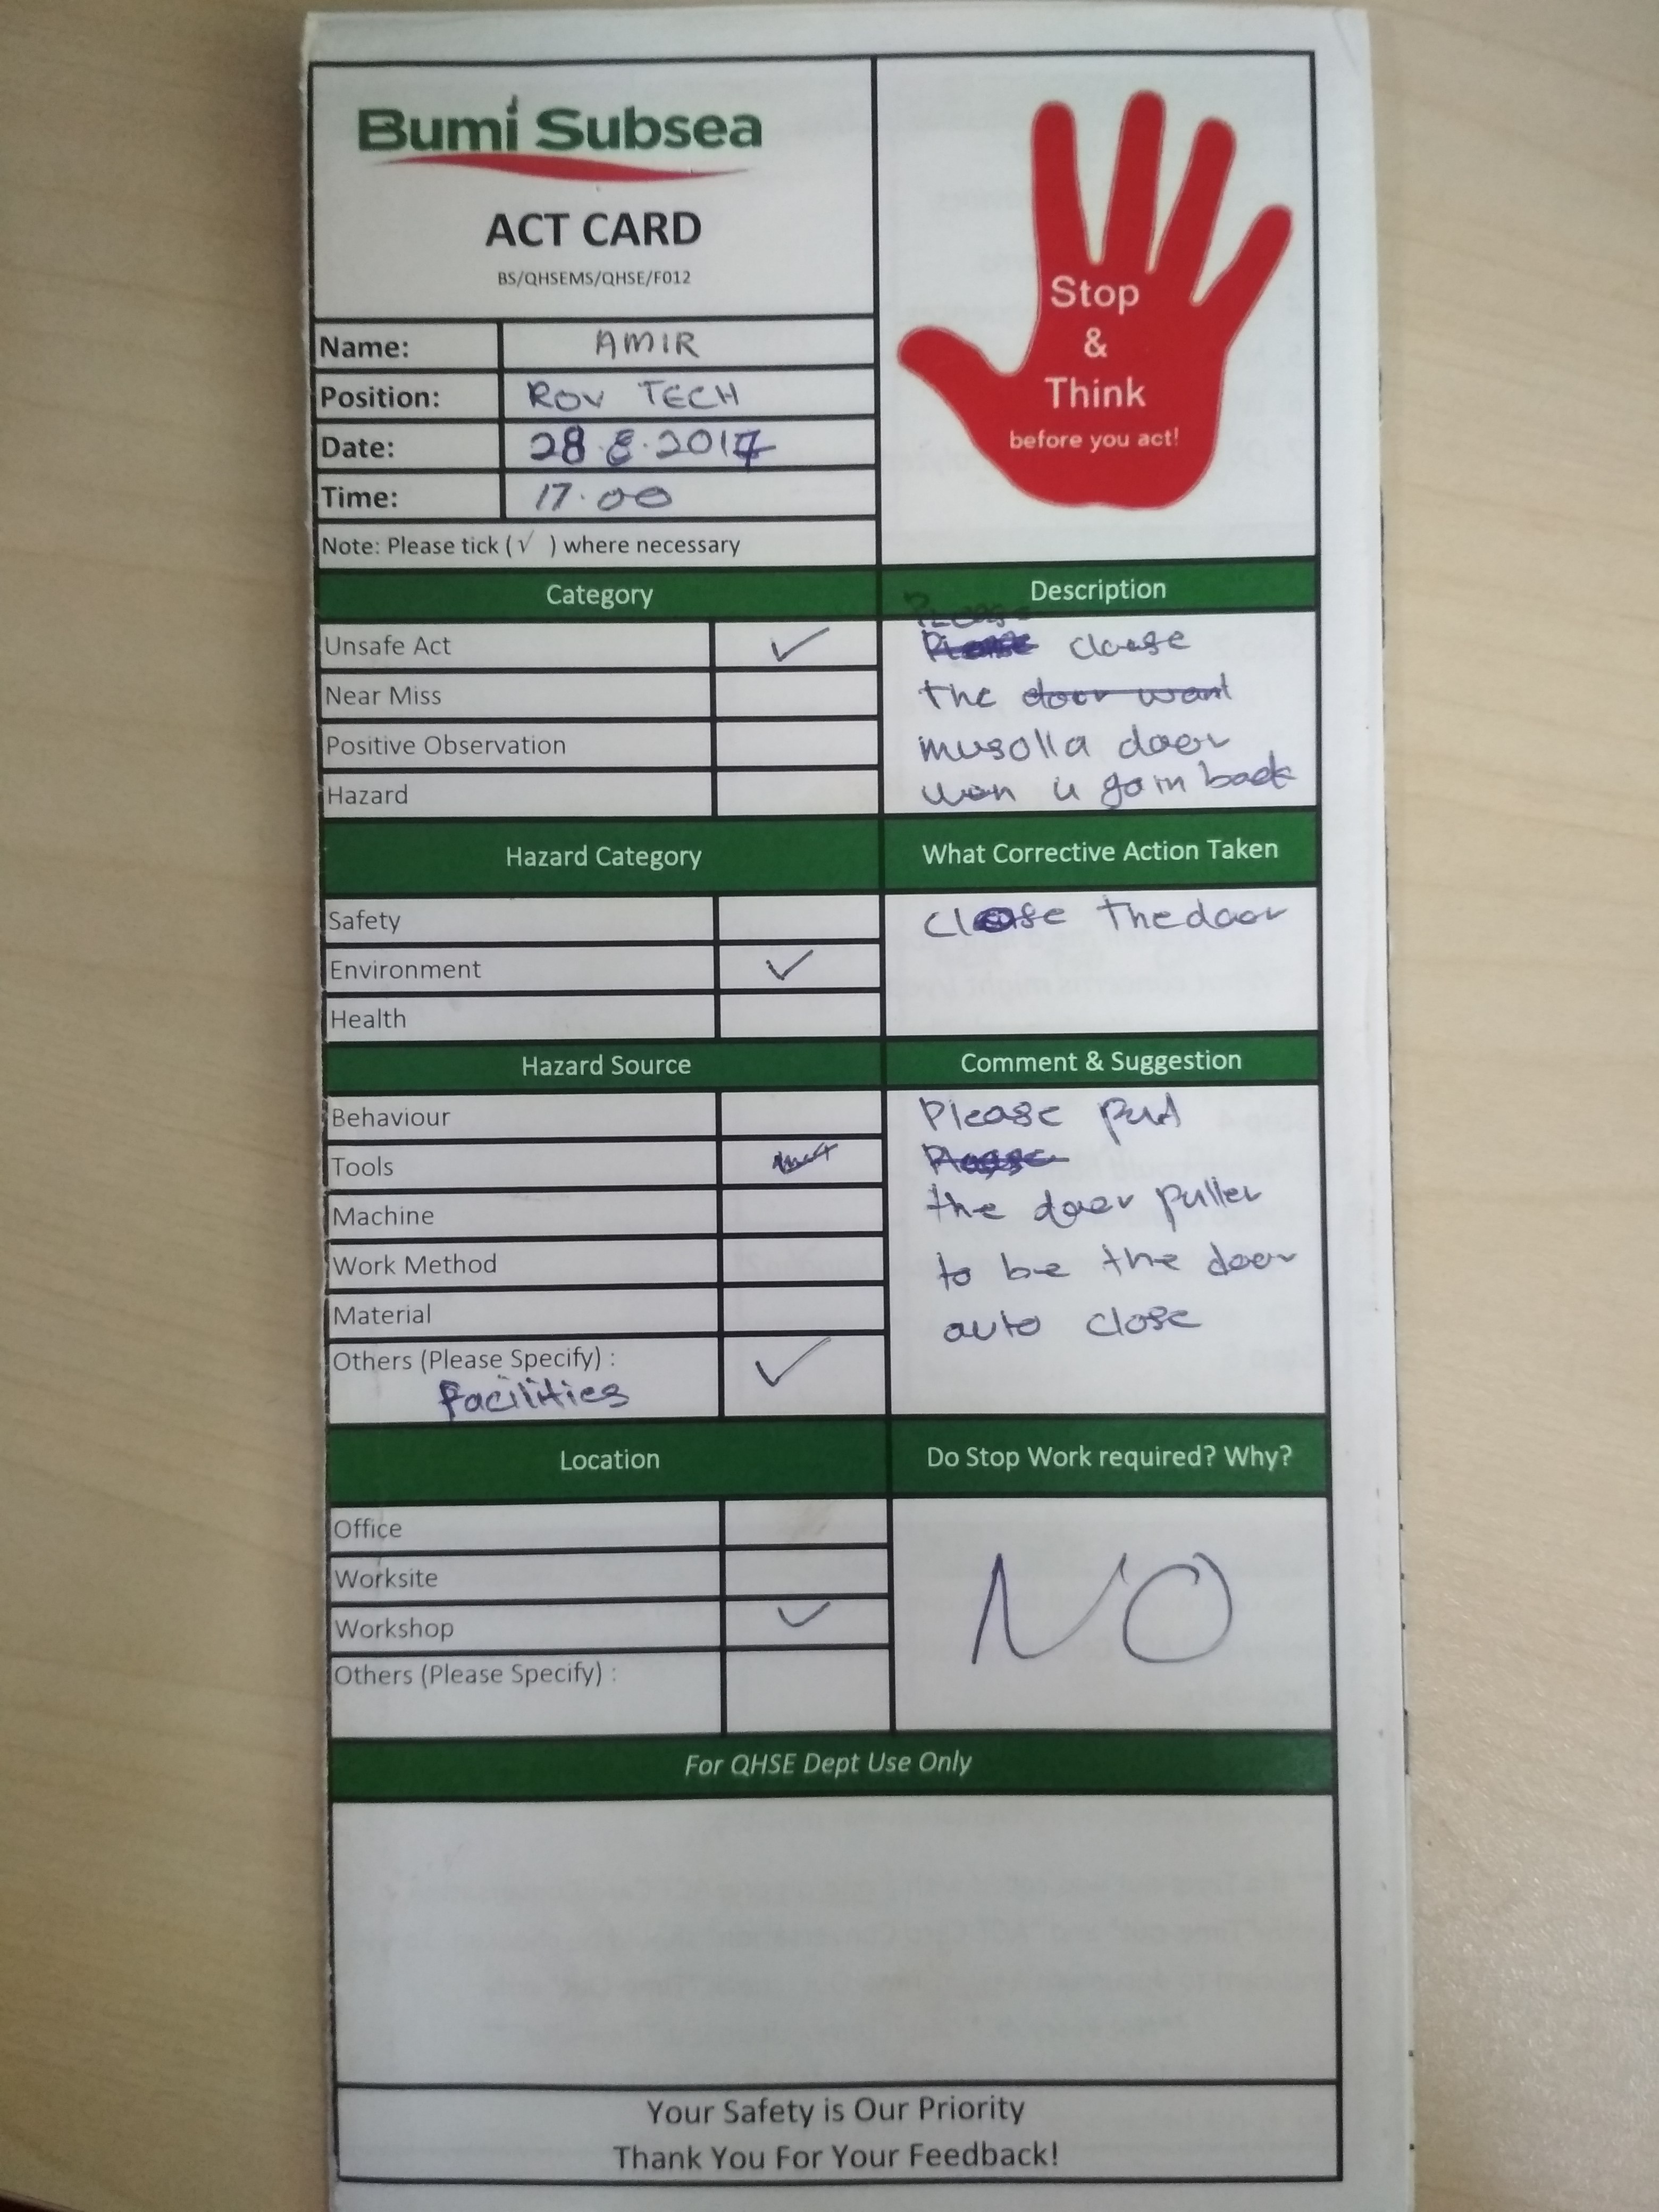 Bumi Subsea
ACT CARD
BS/QHSEMS/QHSE/F012
Stop
&
Think
before you act!
Name: AMIR
Position: ROV TECH
Date: 28.8.2017
Time: 17.00
Note: Please tick (√ ) where necessary
Category
Unsafe Act ✓
Near Miss
Positive Observation
Hazard
Description
Please
clouse
the door want
musolla door
wen u go in back
Hazard Category
Safety
Environment ✓
Health
What Corrective Action Taken
Close the door
Hazard Source
Behaviour
Tools
Machine
Work Method
Material
Others (Please Specify) : ✓
Facilities
Comment & Suggestion
Please put
the doer puller
to be the door
auto close
Location
Office
Worksite
Workshop ✓
Others (Please Specify) :
Do Stop Work required? Why?
NO
For QHSE Dept Use Only
Your Safety is Our Priority
Thank You For Your Feedback!